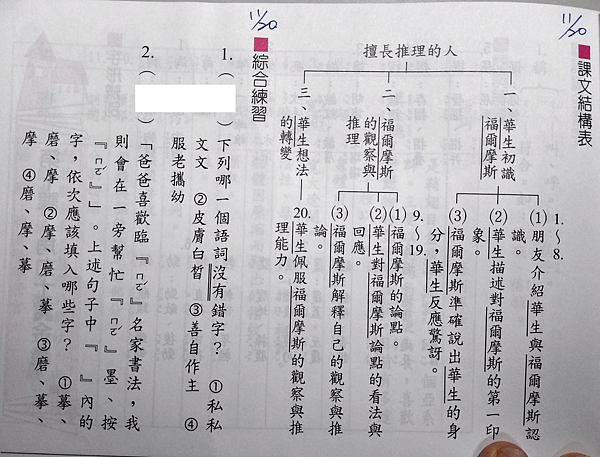 11/20
課文結構表
擅長推理的人
一、華生初識
福爾摩斯
1.～8.
(1)朋友介紹華生與福爾摩斯認
識。
(2)華生描述對福爾摩斯的第一印
象。
(3)福爾摩斯準確說出華生的身
分，華生反應驚訝。
二、福爾摩斯
的觀察與
推理
9.～19.
(1)福爾摩斯的論點。
(2)華生對福爾摩斯論點的看法與
回應。
(3)福爾摩斯解釋自己的觀察與推
論。
三、華生想法
的轉變
20.華生佩服福爾摩斯的觀察與推
理能力。
11/20
綜合練習
1.（ ）下列哪一個語詞沒有錯字？ ①私私
文文 ②皮膚白皙 ③善自作主 ④
服老攜幼
2.（ ）「爸爸喜歡臨『ㄇㄛˊ』名家書法，我
則會在一旁幫忙『ㄇㄛˊ』墨、按
『ㄇㄛˊ』」。上述句子中『 』內的
字，依次應該填入哪些字？ ①摹、
磨、摩 ②摩、磨、摹 ③磨、摹、
摩 ④磨、摩、摹